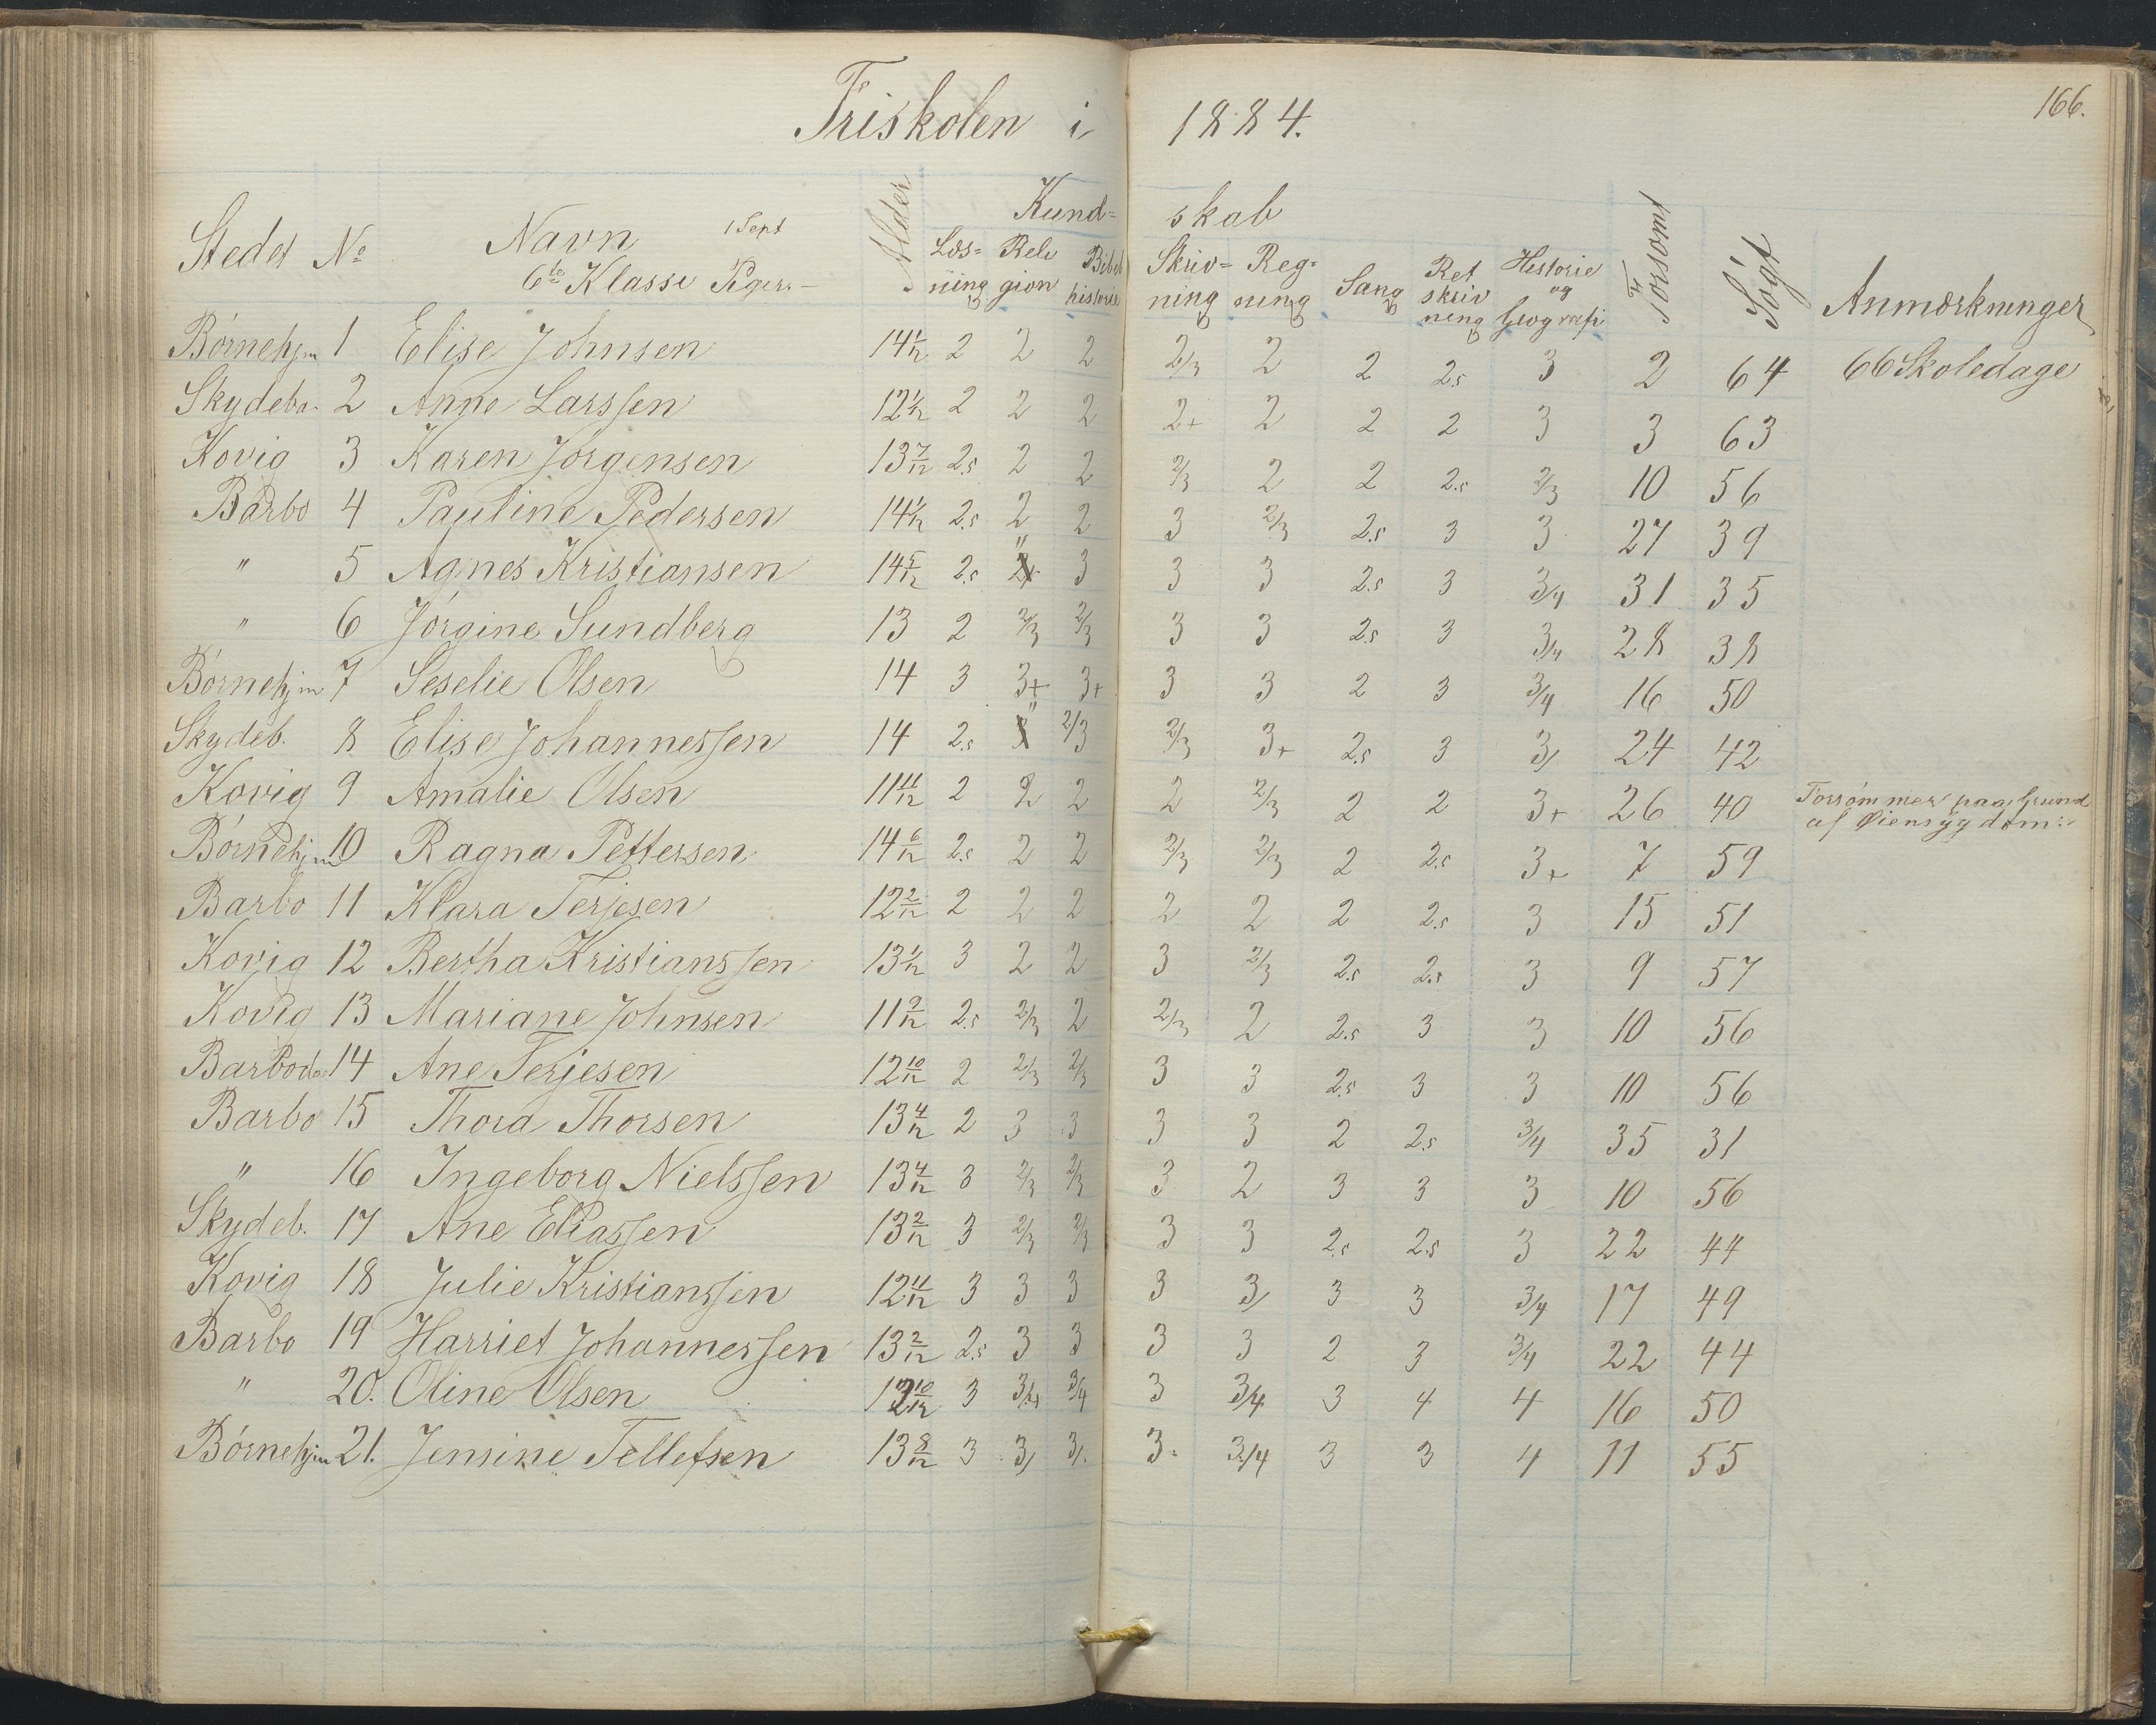 166.
Friskolen i 1884.
Stedet No Navn 1 Sept Alder Kund= skab Forsømt Søgt Anmærkninger
6te Klasse Piger Læs=ning Reli gion Bibel historie Skriv=ning Reg=ning Sang Ret skriv ning Historie og Geografi
Børnehjm 1 Elise Johnsen 14 1/12 2 2 2 2/3 2 2 2.5 3 2 64 66 Skoledage
Skydeb. 2 Anne Larssen 12 1/12 2 2 2 2+ 2 2 2 3 3 63
Kovig 3 Karen Jørgensen 13 7/12 2.5 2 2 2/3 2 2 2.5 2/3 10 56
Barbo 4 Pauline Pedersen 14 1/12 2.5 2 2 3 2/3 2.5 3 3 27 39
" 5 Agnes Kristiansen 14 5/12 2.5 " 3 3 3 2.5 3 3/4 31 35
" 6 Jørgine Sundberg 13 2 2/3 2/3 3 3 2.5 3 3/4 28 38
Børnehjm 7 Seselie Olsen 14 3 3+ 3+ 3 3 2 3 3/4 16 50
Skydeb. 8 Elise Johannessen 14 2.5 " 2/3 2/3 3+ 2.5 3 3/ 24 42
Kovig 9 Amalie Olsen 11 11/12 2 2 2 2 2/3 2 2 3+ 26 40 Forsømmer paa Grund
af Øiensygdom:
Børnehjm 10 Ragna Pettersen 14 6/12 2.5 2 2 2/3 2/3 2 2.5 3+ 7 59
Barbo 11 Klara Terjesen 12 2/12 2 2 2 2 2 2 2.5 3 15 51
Kovig 12 Bertha Kristianssen 13 1/12 3 2 2 3 2/3 2.5 2.5 3 9 57
Kovig 13 Mariane Johnsen 11 9/12 2.5 2/3 2 2/3 2 2.5 3 3 10 56
Barbod. 14 Ane Terjesen 12 10/12 2 2/3 2/3 3 3 2.5 3 3 10 56
Barbo 15 Thora Thorsen 13 4/12 2 3 3 3 3 2 2.5 3/4 35 31
" 16 Ingeborg Nielssen 13 4/12 3 2/3 2/3 3 2 3 3 3 10 56
Skydeb. 17 Ane Eliassen 13 2/12 3 2/3 2/3 3 3 2.5 2.5 3 22 44
Kovig 18 Julie Kristianssen 12 11/12 3 3 3 3 3/ 3 3 3/4 17 49
Barbo 19 Harriet Johannessen 13 2/12 2.5 3 3 3 3 2 3 3/4 22 44
" 20. Oline Olsen 12 10/12 3 3/4 3/4 3 3/4 3 4 4 16 50
Børnehjm 21. Jensine Tellefsen 13 8/12 3 3/ 3/. 3. 3/4 3 3 4 11 55